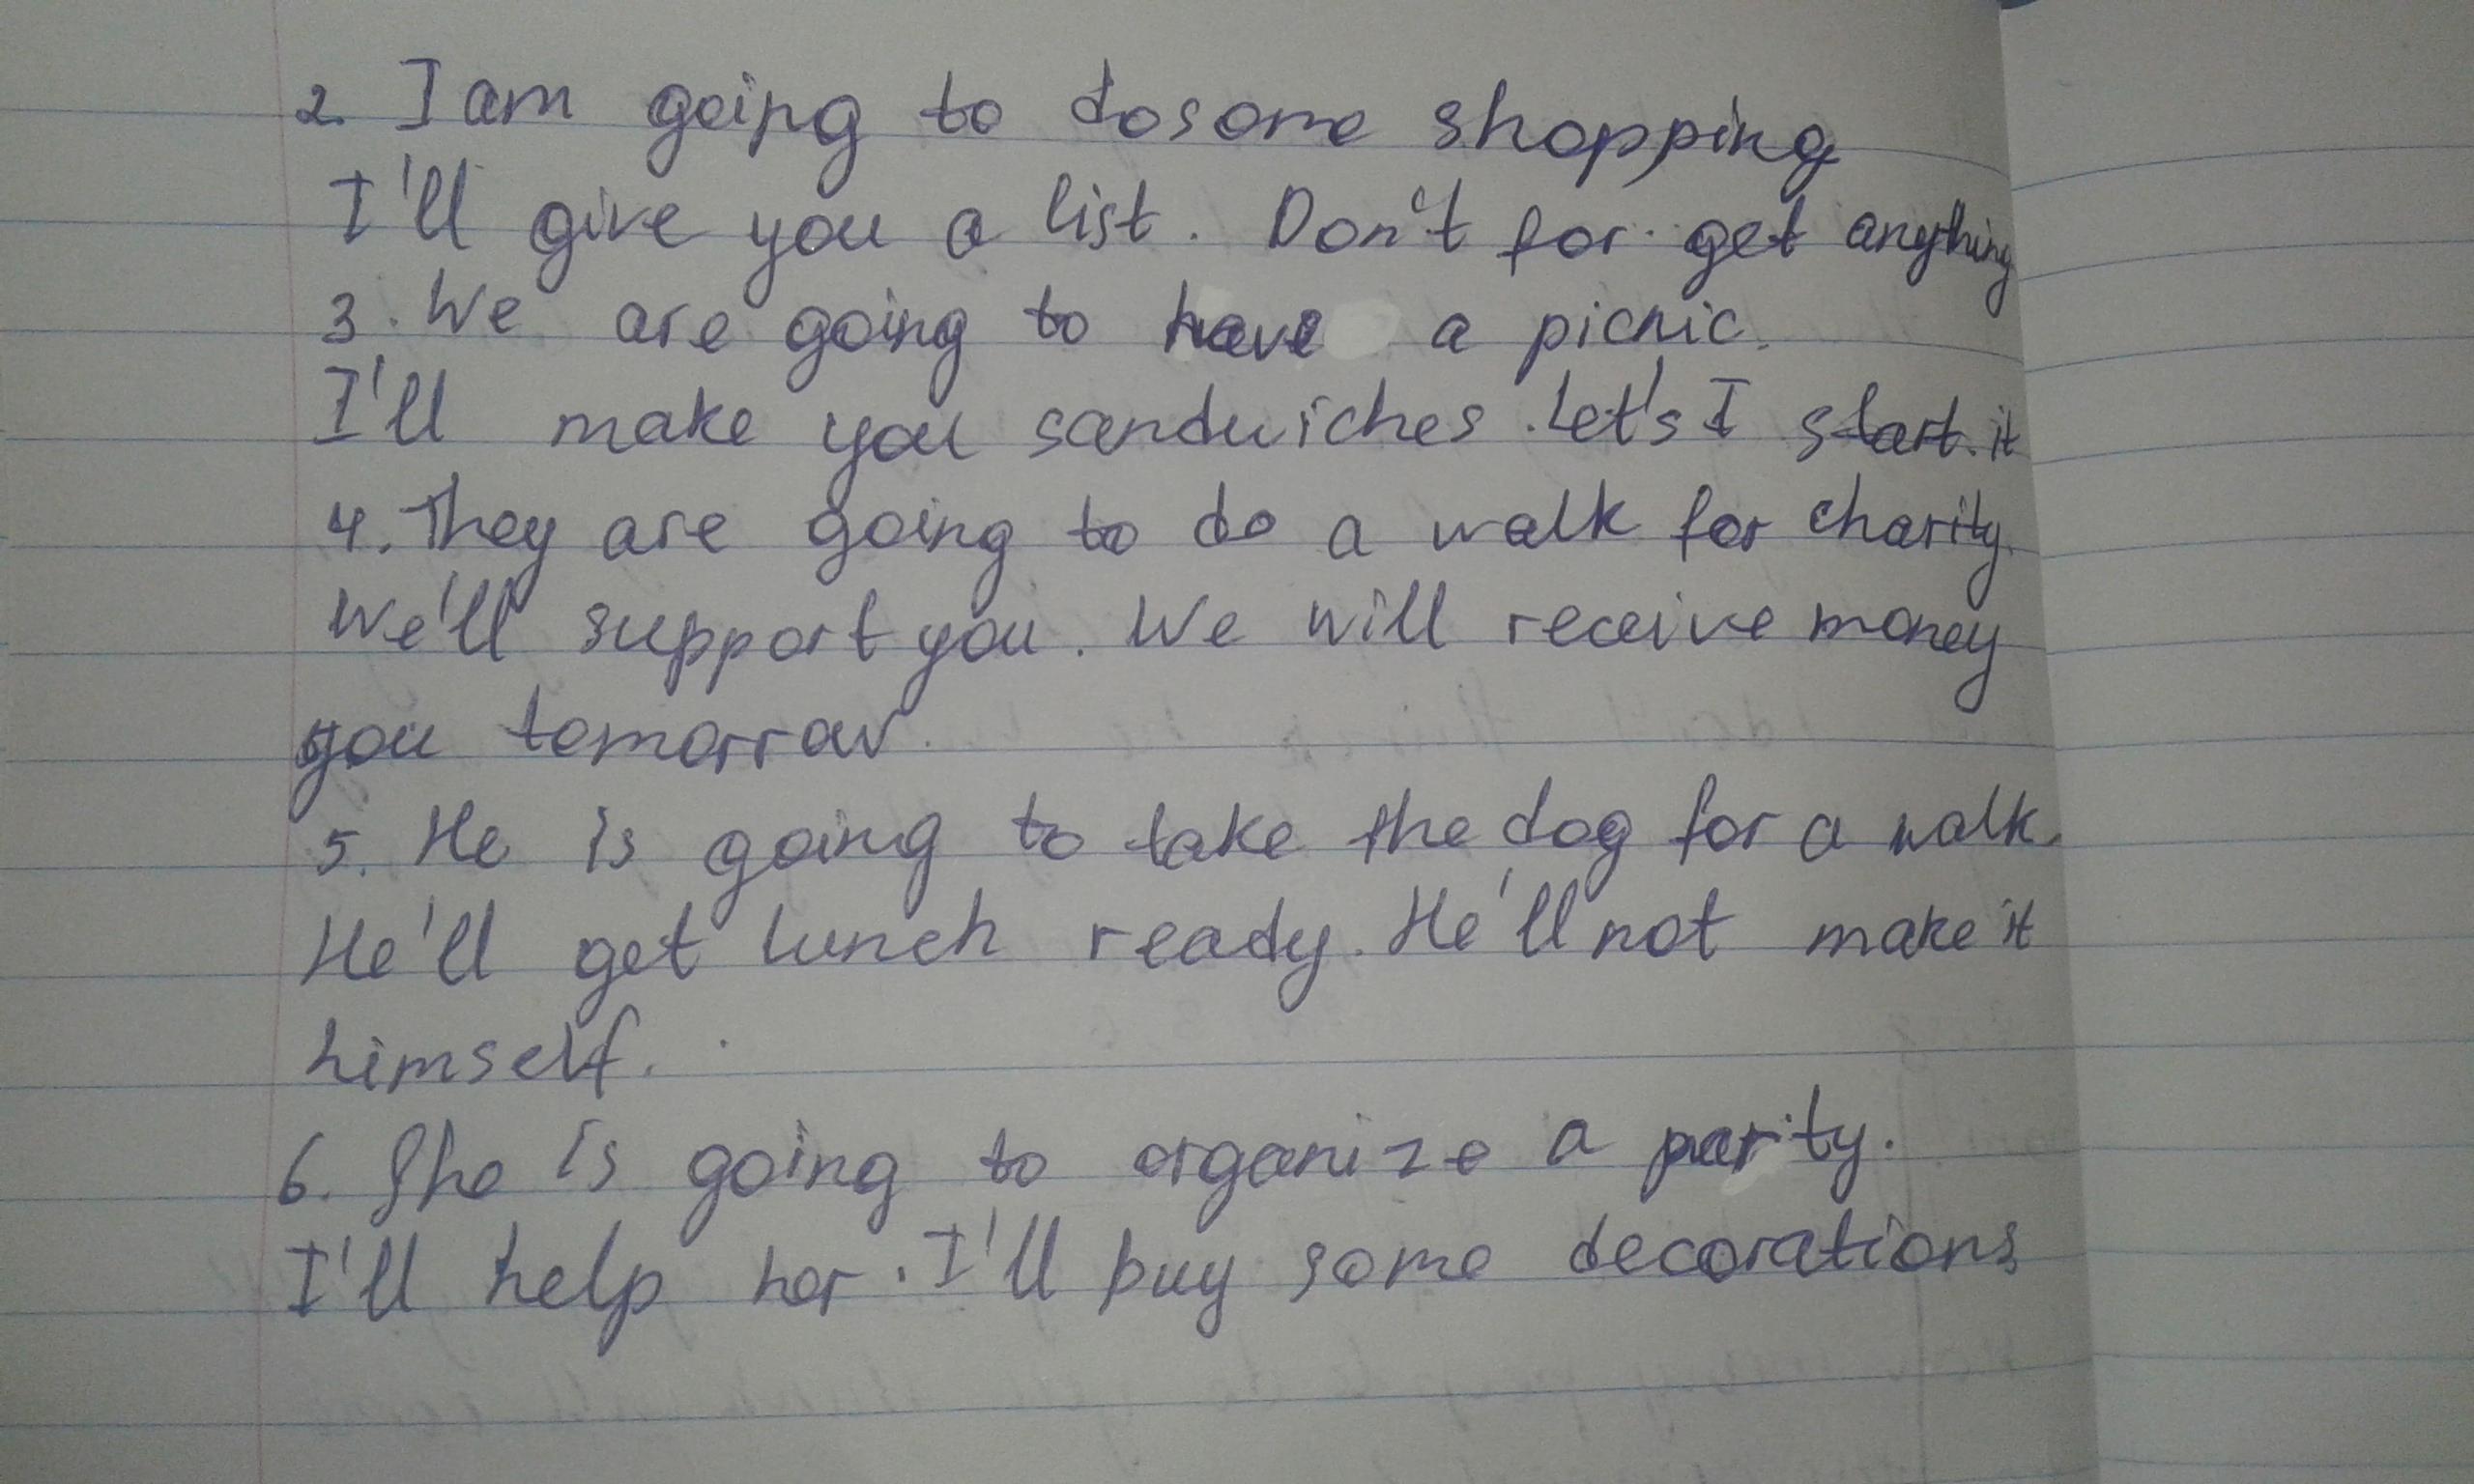 2. I am going to dosome shopping
I'll give you a list. Don't for get anything
3. We are going to have a picnic.
I'll make you sanduiches. Let's I start it
4. They are going to do a walk for charity.
We'll support you. We will receive money
you tomorrow.
5. He is going to take the dog for a walk.
He'll get lunch ready. He'll not make it
himself.
6. She is going to organize a parity.
I'll help her. I'll buy some decorations